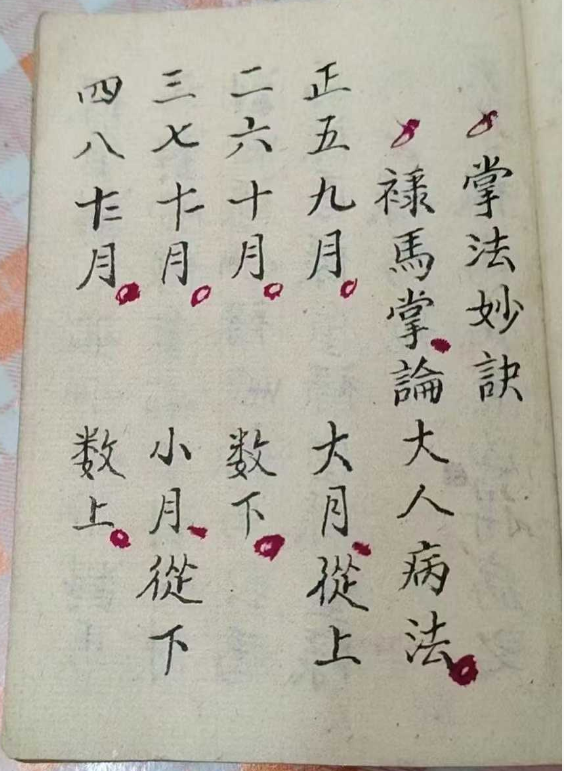 掌法妙訣
祿馬掌論大人病法
正五九月 大月從上
二六十月 数下
三七十一月 小月從下
四八十二月 数上